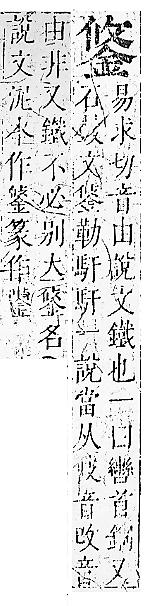 鋚
易求切音由說文鐵也一曰轡首銅又
石鼓文鋚勒馯馯一說當从攸音改音
由非又鐵不必别大鋚名
說文沉本作鋚篆作